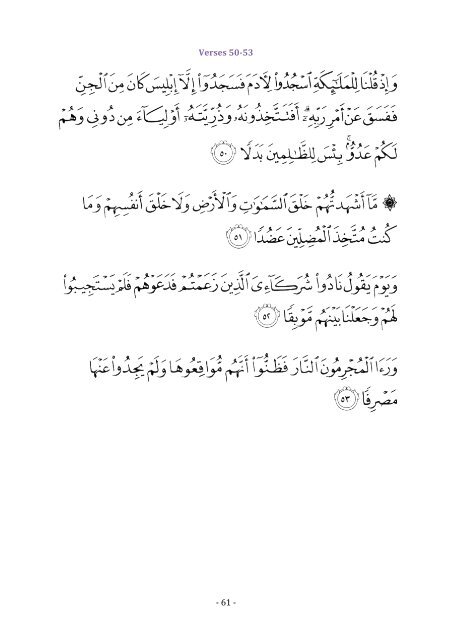 Verses 50-53
وَإِذْ قُلْنَا لِلْمَلَـٰٓئِكَةِ ٱسْجُدُوا۟ لِـَٔادَمَ فَسَجَدُوٓا۟ إِلَّآ إِبْلِيسَ كَانَ مِنَ ٱلْجِنِّ
فَفَسَقَ عَنْ أَمْرِ رَبِّهِۦٓ ۗ أَفَتَتَّخِذُونَهُۥ وَذُرِّيَّتَهُۥٓ أَوْلِيَآءَ مِن دُونِى وَهُمْ
لَكُمْ عَدُوٌّۢ ۚ بِئْسَ لِلظَّـٰلِمِينَ بَدَلًا ﴿٥٠﴾
۞ مَّآ أَشْهَدتُّهُمْ خَلْقَ ٱلسَّمَـٰوَٰتِ وَٱلْأَرْضِ وَلَا خَلْقَ أَنفُسِهِمْ وَمَا
كُنتُ مُتَّخِذَ ٱلْمُضِلِّينَ عَضُدًا ﴿٥١﴾
وَيَوْمَ يَقُولُ نَادُوا۟ شُرَكَآءِىَ ٱلَّذِينَ زَعَمْتُمْ فَدَعَوْهُمْ فَلَمْ يَسْتَجِيبُوا۟
لَهُمْ وَجَعَلْنَا بَيْنَهُم مَّوْبِقًا ﴿٥٢﴾
وَرَءَا ٱلْمُجْرِمُونَ ٱلنَّارَ فَظَنُّوٓا۟ أَنَّهُم مُّوَاقِعُوهَا وَلَمْ يَجِدُوا۟ عَنْهَا
مَصْرِفًا ﴿٥٣﴾
- 61 -